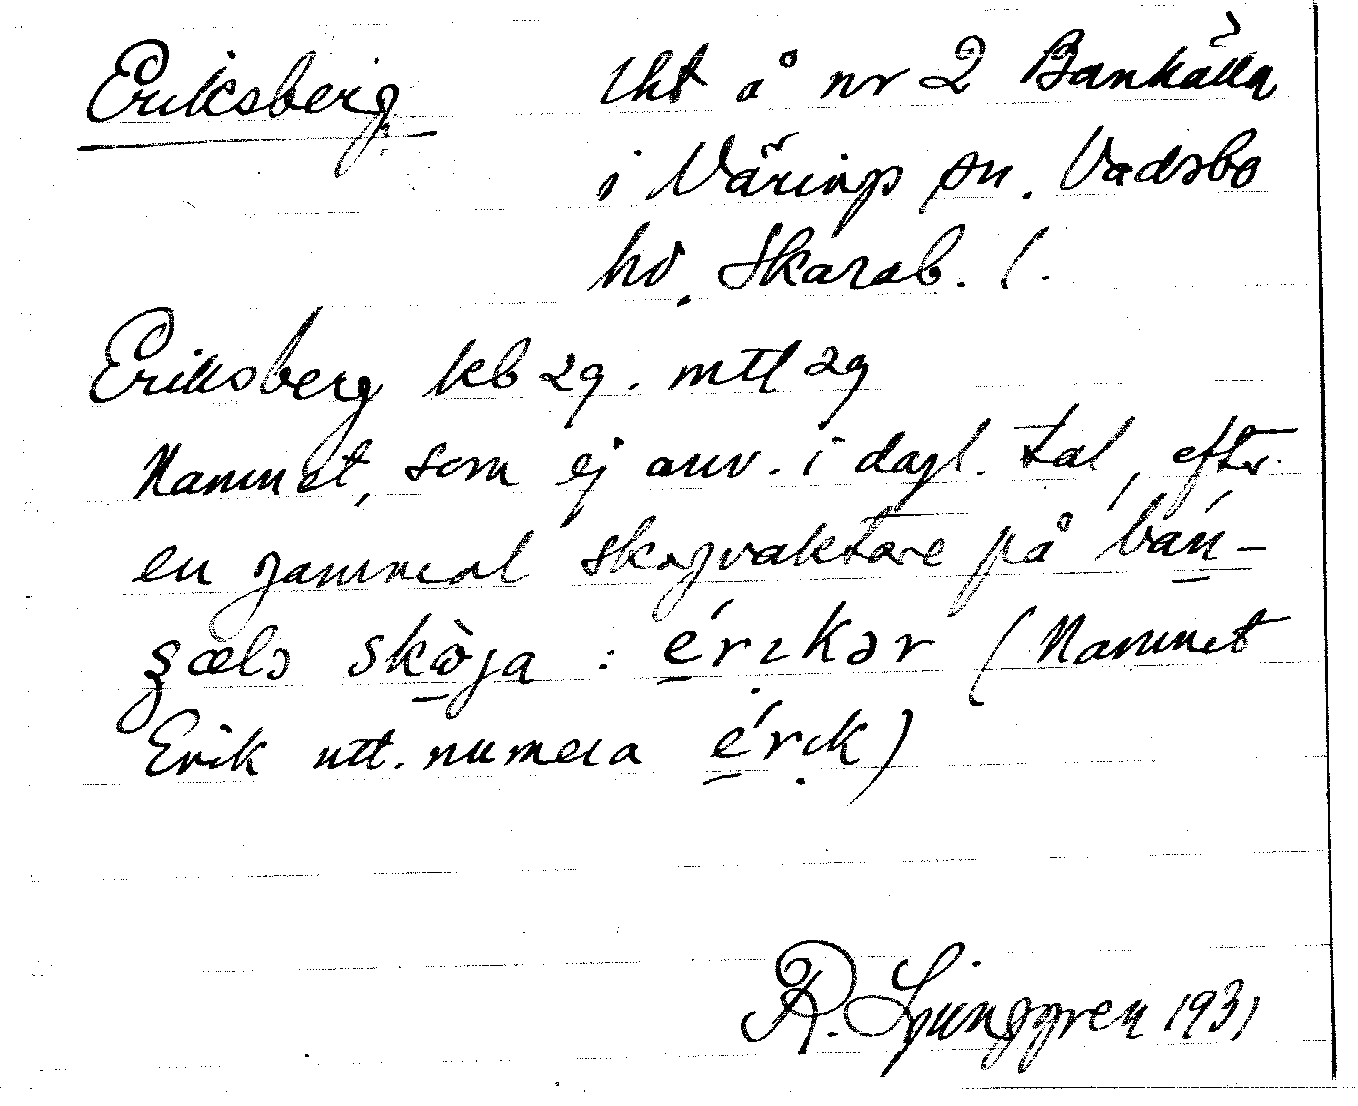 Eriksberg lht å nr 2 Bankälla
i Värings sn. Vadsbo
hd. Skarab. l.
Eriksberg kb 29. mtl 29
Namnet, som ej anv. i dagl. tal, efter
en gammal skogvaktare på bán-
çæls skòga : érıkər (Namnet
Erik utt. numera érık)
R. Ljunggren 1931